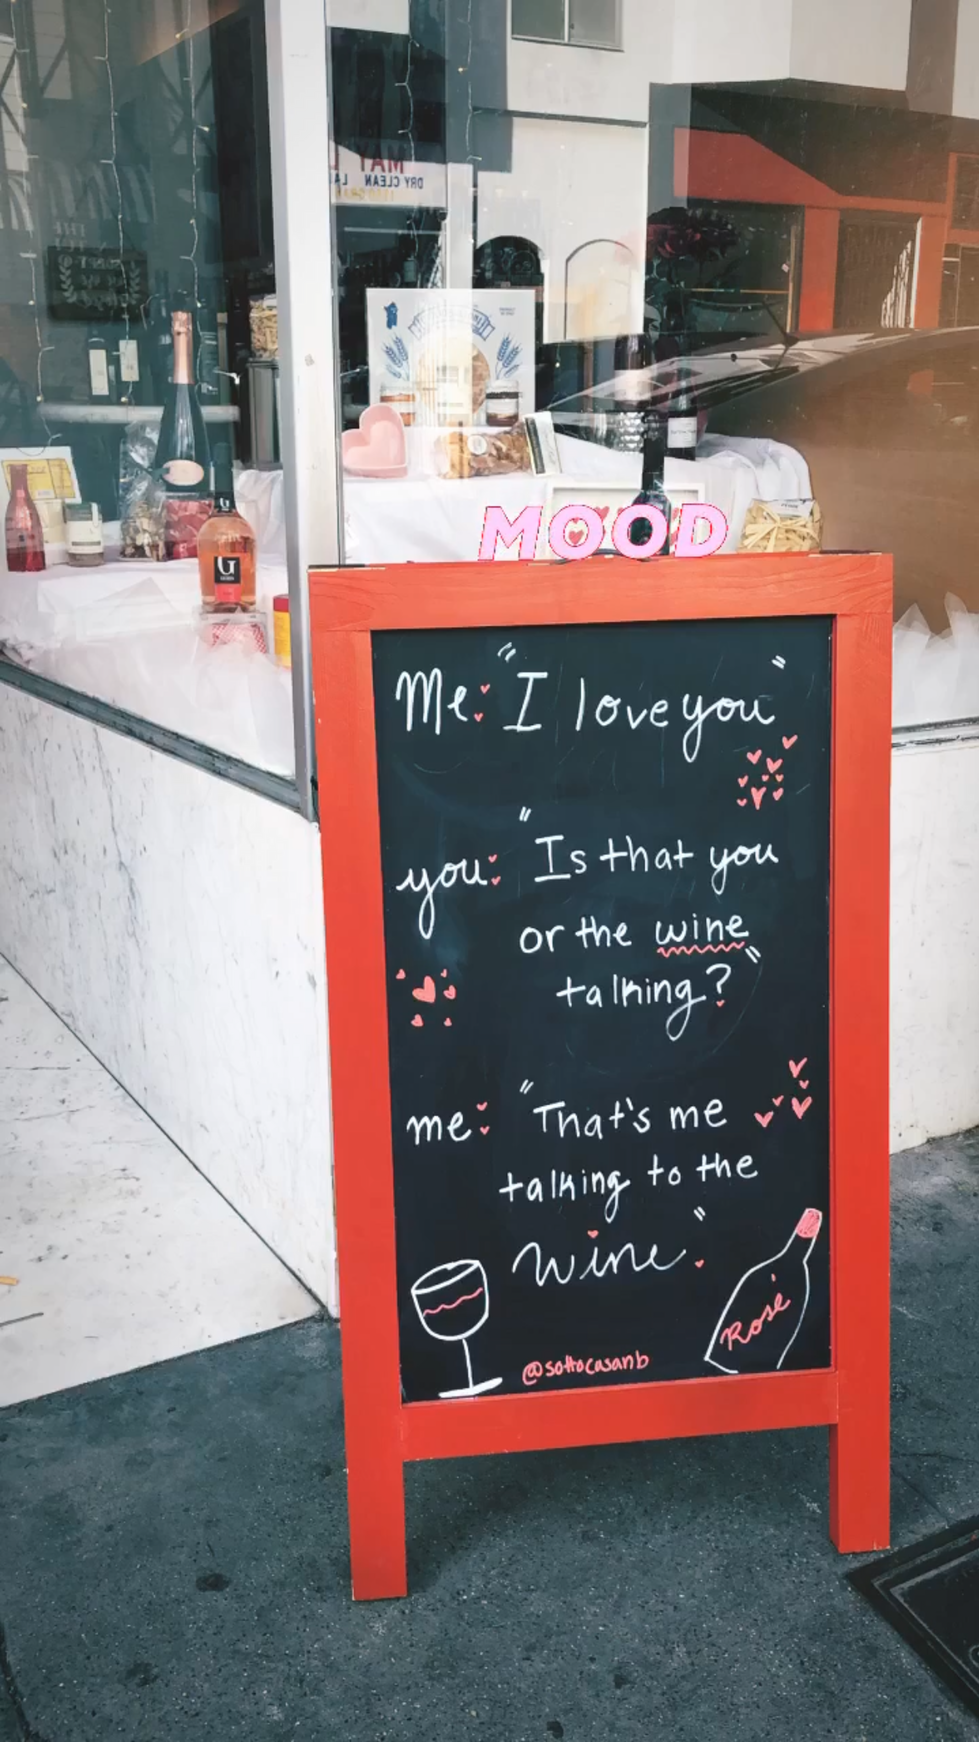 MAY
DRY CLEAN
MOOD
Me: "I love you"
you: "Is that you
or the wine
talking?"
me: "That's me
talking to the
wine".
Rosé
@sottocasanb